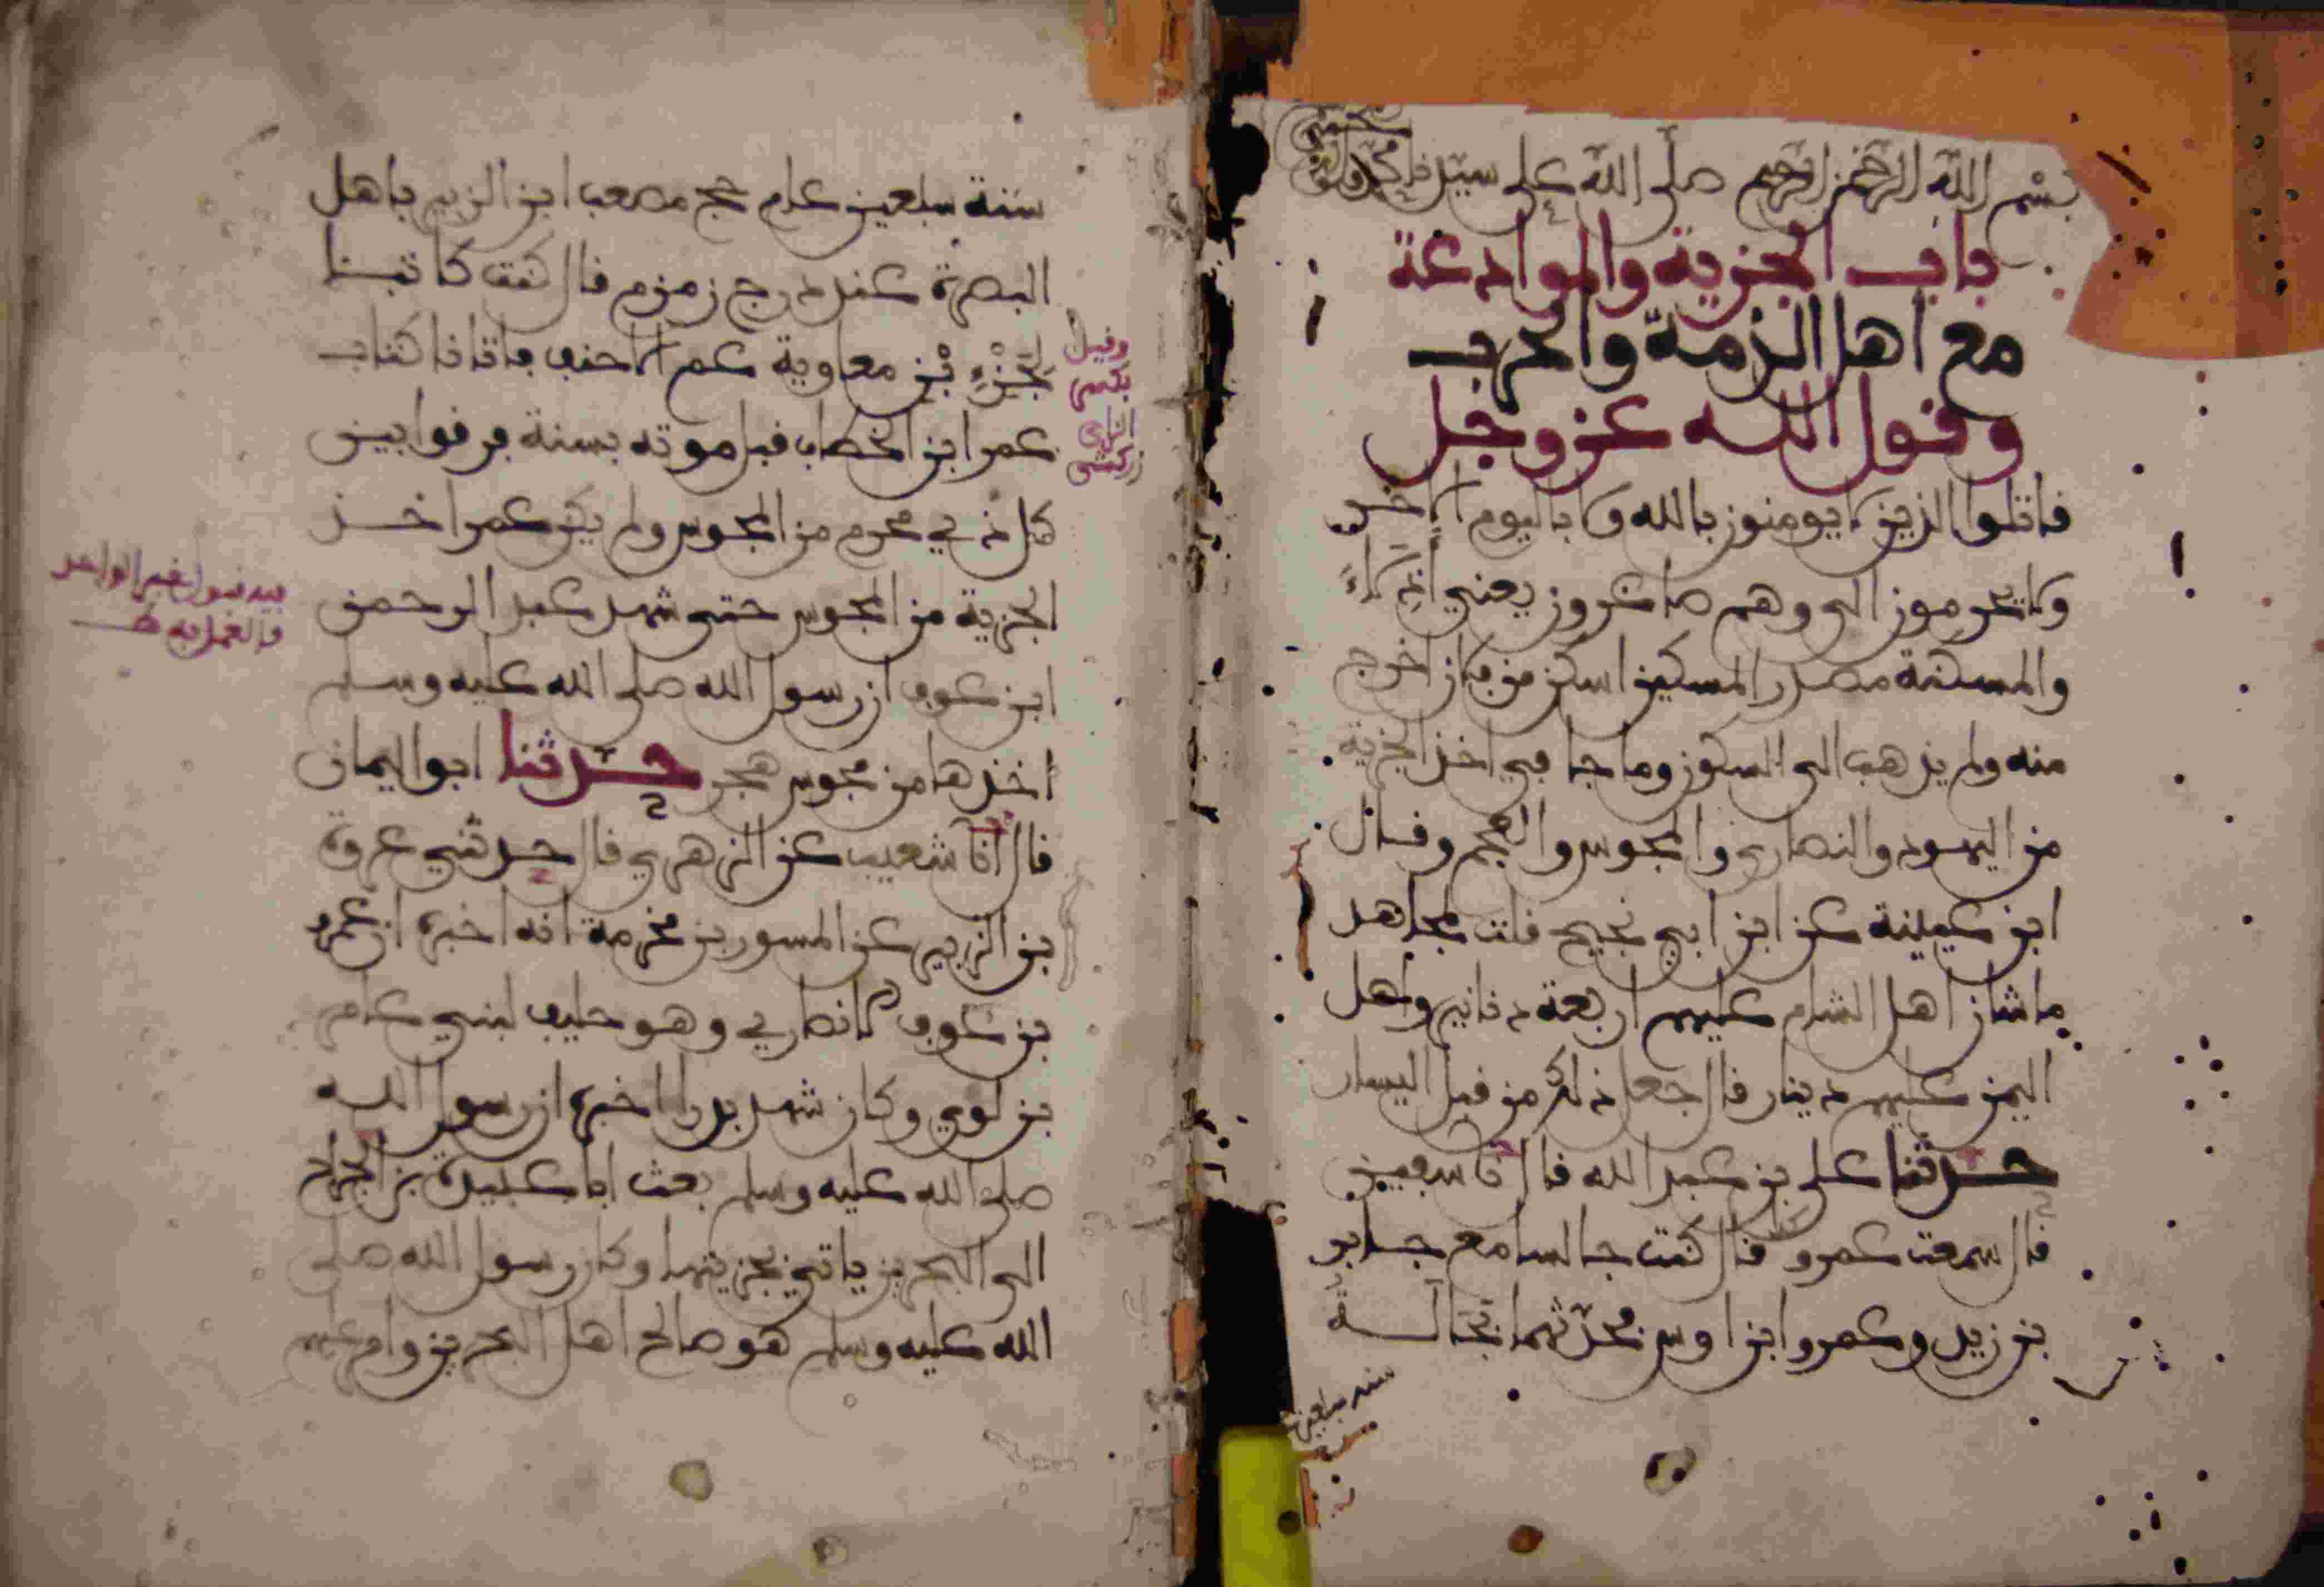 بسم الله الرحمن الرحيم صلى الله على سيدنا محمد
باب الجزية والموادعة
مع اهل الذمة والحرب
وقول الله عز وجل
قاتلوا الذين لا يومنون بالله ولا باليوم الاخر
ولا يحرمون الى وهم صاغرون يعني اذلاء
والمسكنة مصدر المسكين اسكن من فلان احوج
منه ولم يذهب الى السكون وما جا في اخذ الجزية
من اليهود والنصارى والمجوس والعجم وقال
ابن عيينة عن ابن ابي نجيح قلت لمجاهد
ما شان اهل الشام عليهم اربعة دنانير واهل
اليمن عليهم دينار قال جعل ذلك من قبل اليسار
حدثنا علي بن عبد الله قال نا سفيين
قال سمعت عمرو قال كنت جالسا مع جابر
بن زيد وعمرو ابن اوس فحدثهما بجالة
سنة سبعين
سنة سبعين عام حج مصعب ابن الزبير باهل
البصرة عند درج زمزم قال كنت كاتبا
لجزء بن معاوية عم الاحنف فاتانا كتاب
عمر ابن الخطاب قبل موته بسنة فرقوا بين
كل ذي محرم من المجوس ولم يكن عمر اخذ
الجزية من المجوس حتى شهد عبد الرحمن
ابن عوف ان رسول الله صلى الله عليه وسلم
اخذها من مجوس هجر حدثنا ابو اليمان
قال انا شعيب عن الزهري قال حدثني عروة
بن الزبير عن المسور بن مخرمة انه اخبره ان عمرو
بن عوف الانصاري وهو حليف لبني عامر
بن لوي وكان شهد بدرا اخبره ان رسول الله
صلى الله عليه وسلم بعث ابا عبيدة بن الجراح
الى البحرين ياتي بجزيتها وكان رسول الله صلى
الله عليه وسلم هو صالح اهل البحرين وامر عليهم
وقيل
بكسر
الزاي
زركشي
فيه قبول خبر الواحد
والعمل به